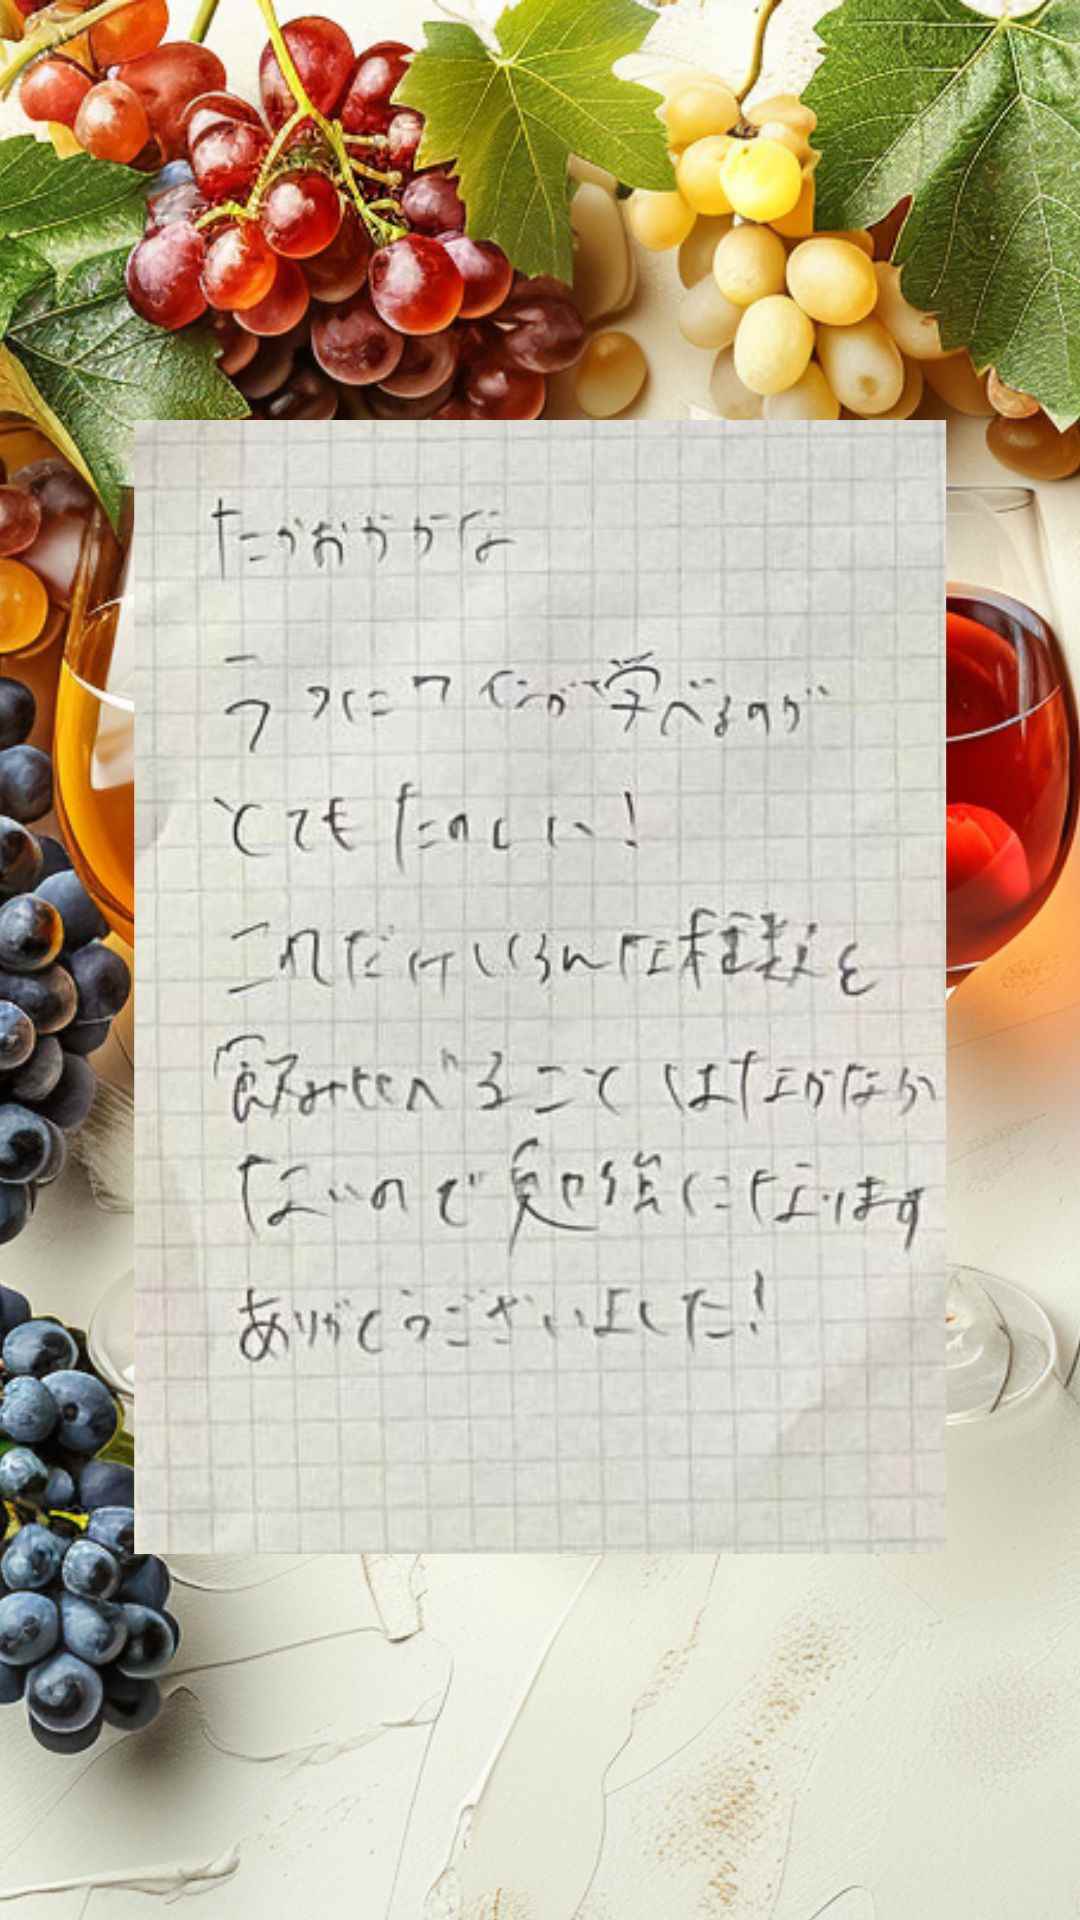 たかおかかな
ラフにワインが学べるのが
とてもたのしい!
これだけいろんな種類を
飲み比べることはなかなか
ないので勉強になります
ありがとうございました!